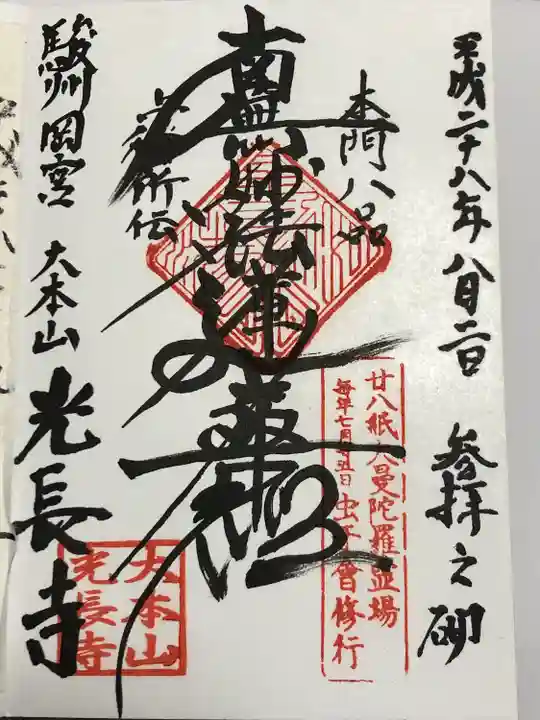 平成二十八年八月二日 参拝之砌
廿八紙大曼陀羅霊場
毎年七月廿五日 虫干會修行
本門八品
南無妙法蓮華経
所伝
駿州岡宮 大本山 光長寺
大本山
光長寺